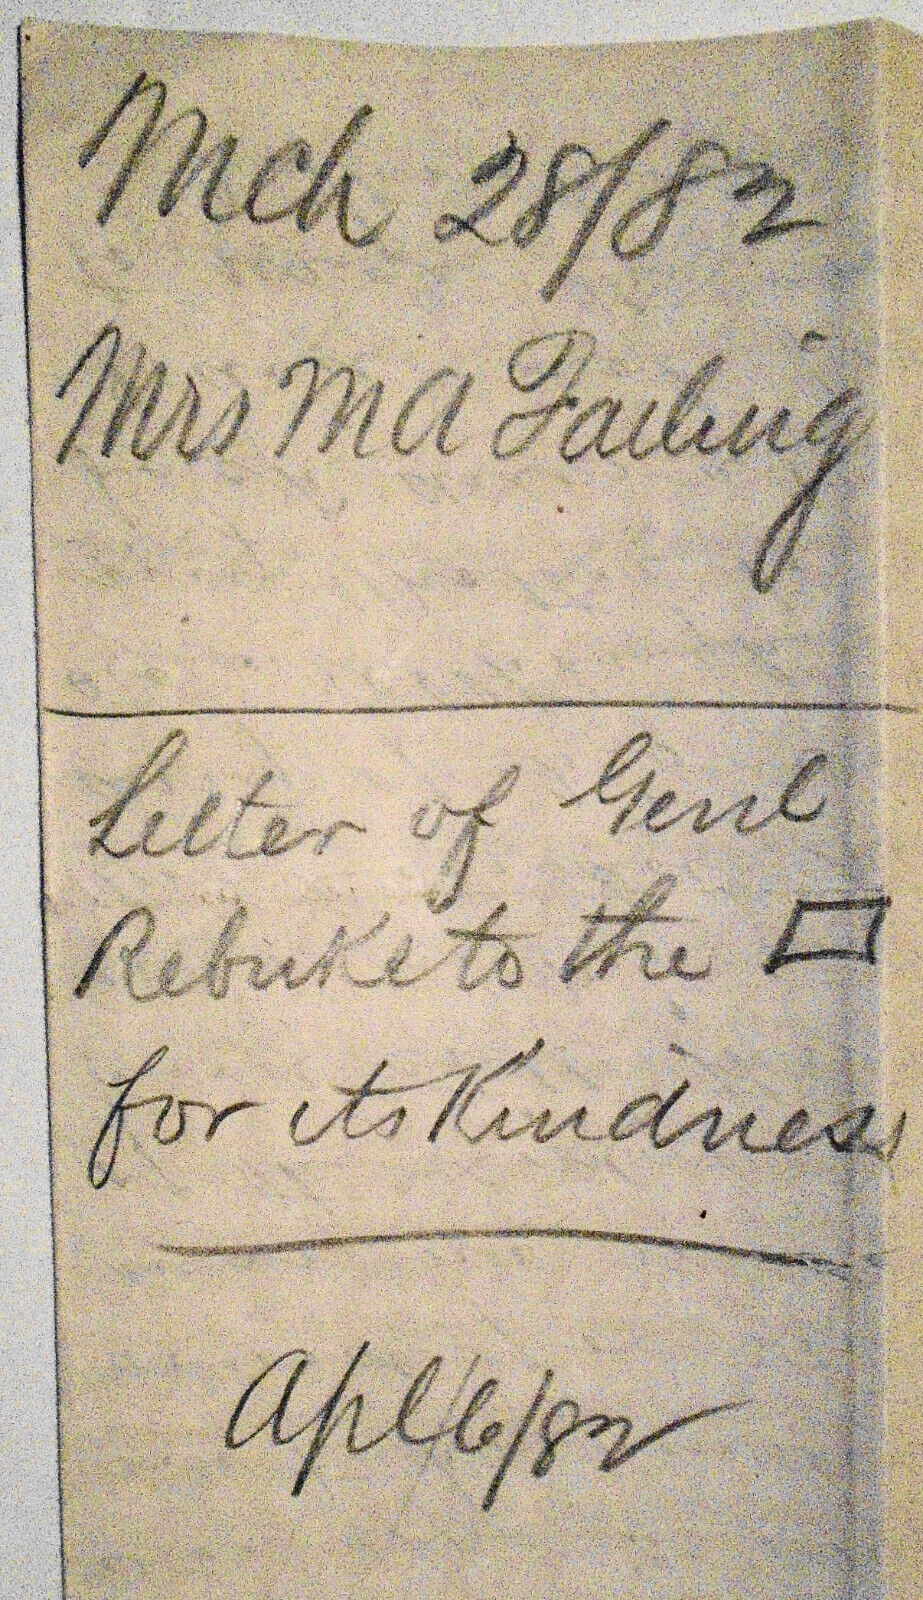 Mch 28/82
Mrs M A Failing
Letter of Genl
Rebuke to the ▭
for its Kindness
Apl 6/82